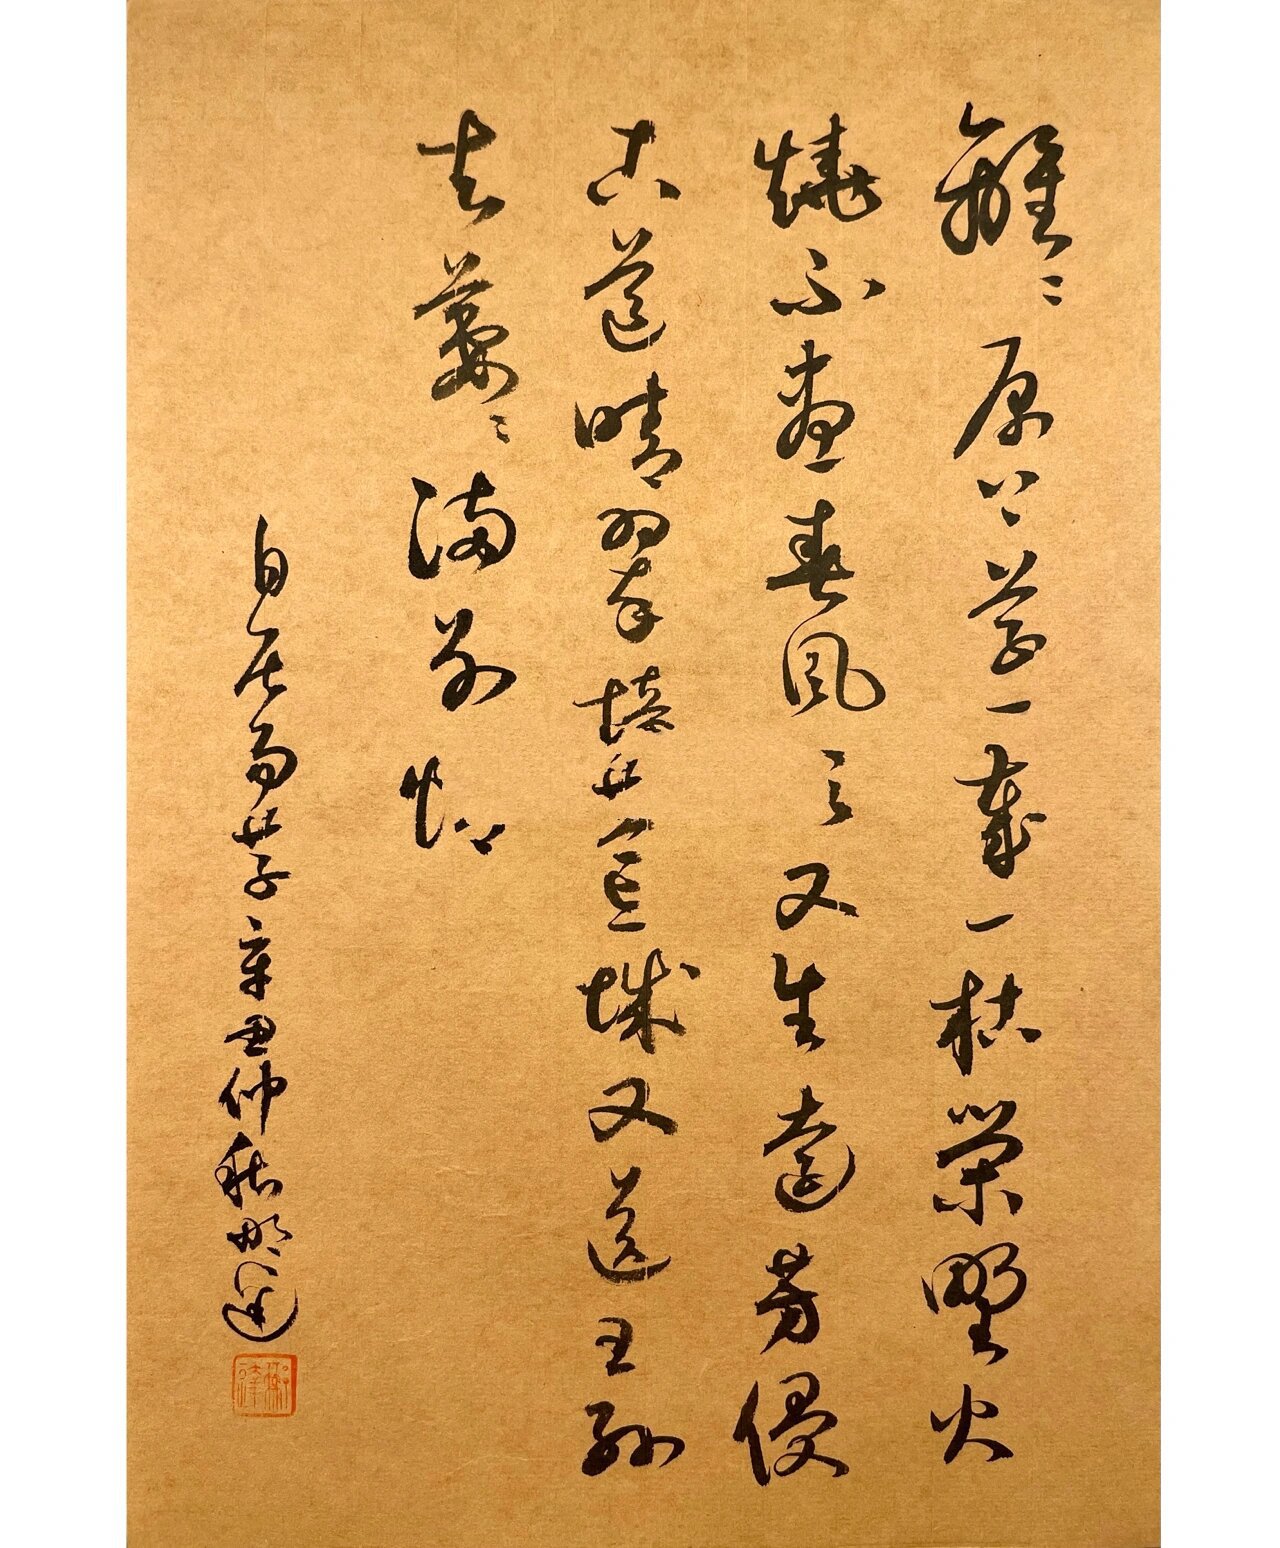 離〻原上草一歲一枯榮野火
燒不盡春風吹又生遠芳侵
古道晴翠接荒城又送王孫
去萋〻滿別情
白居易草辛丑仲秋